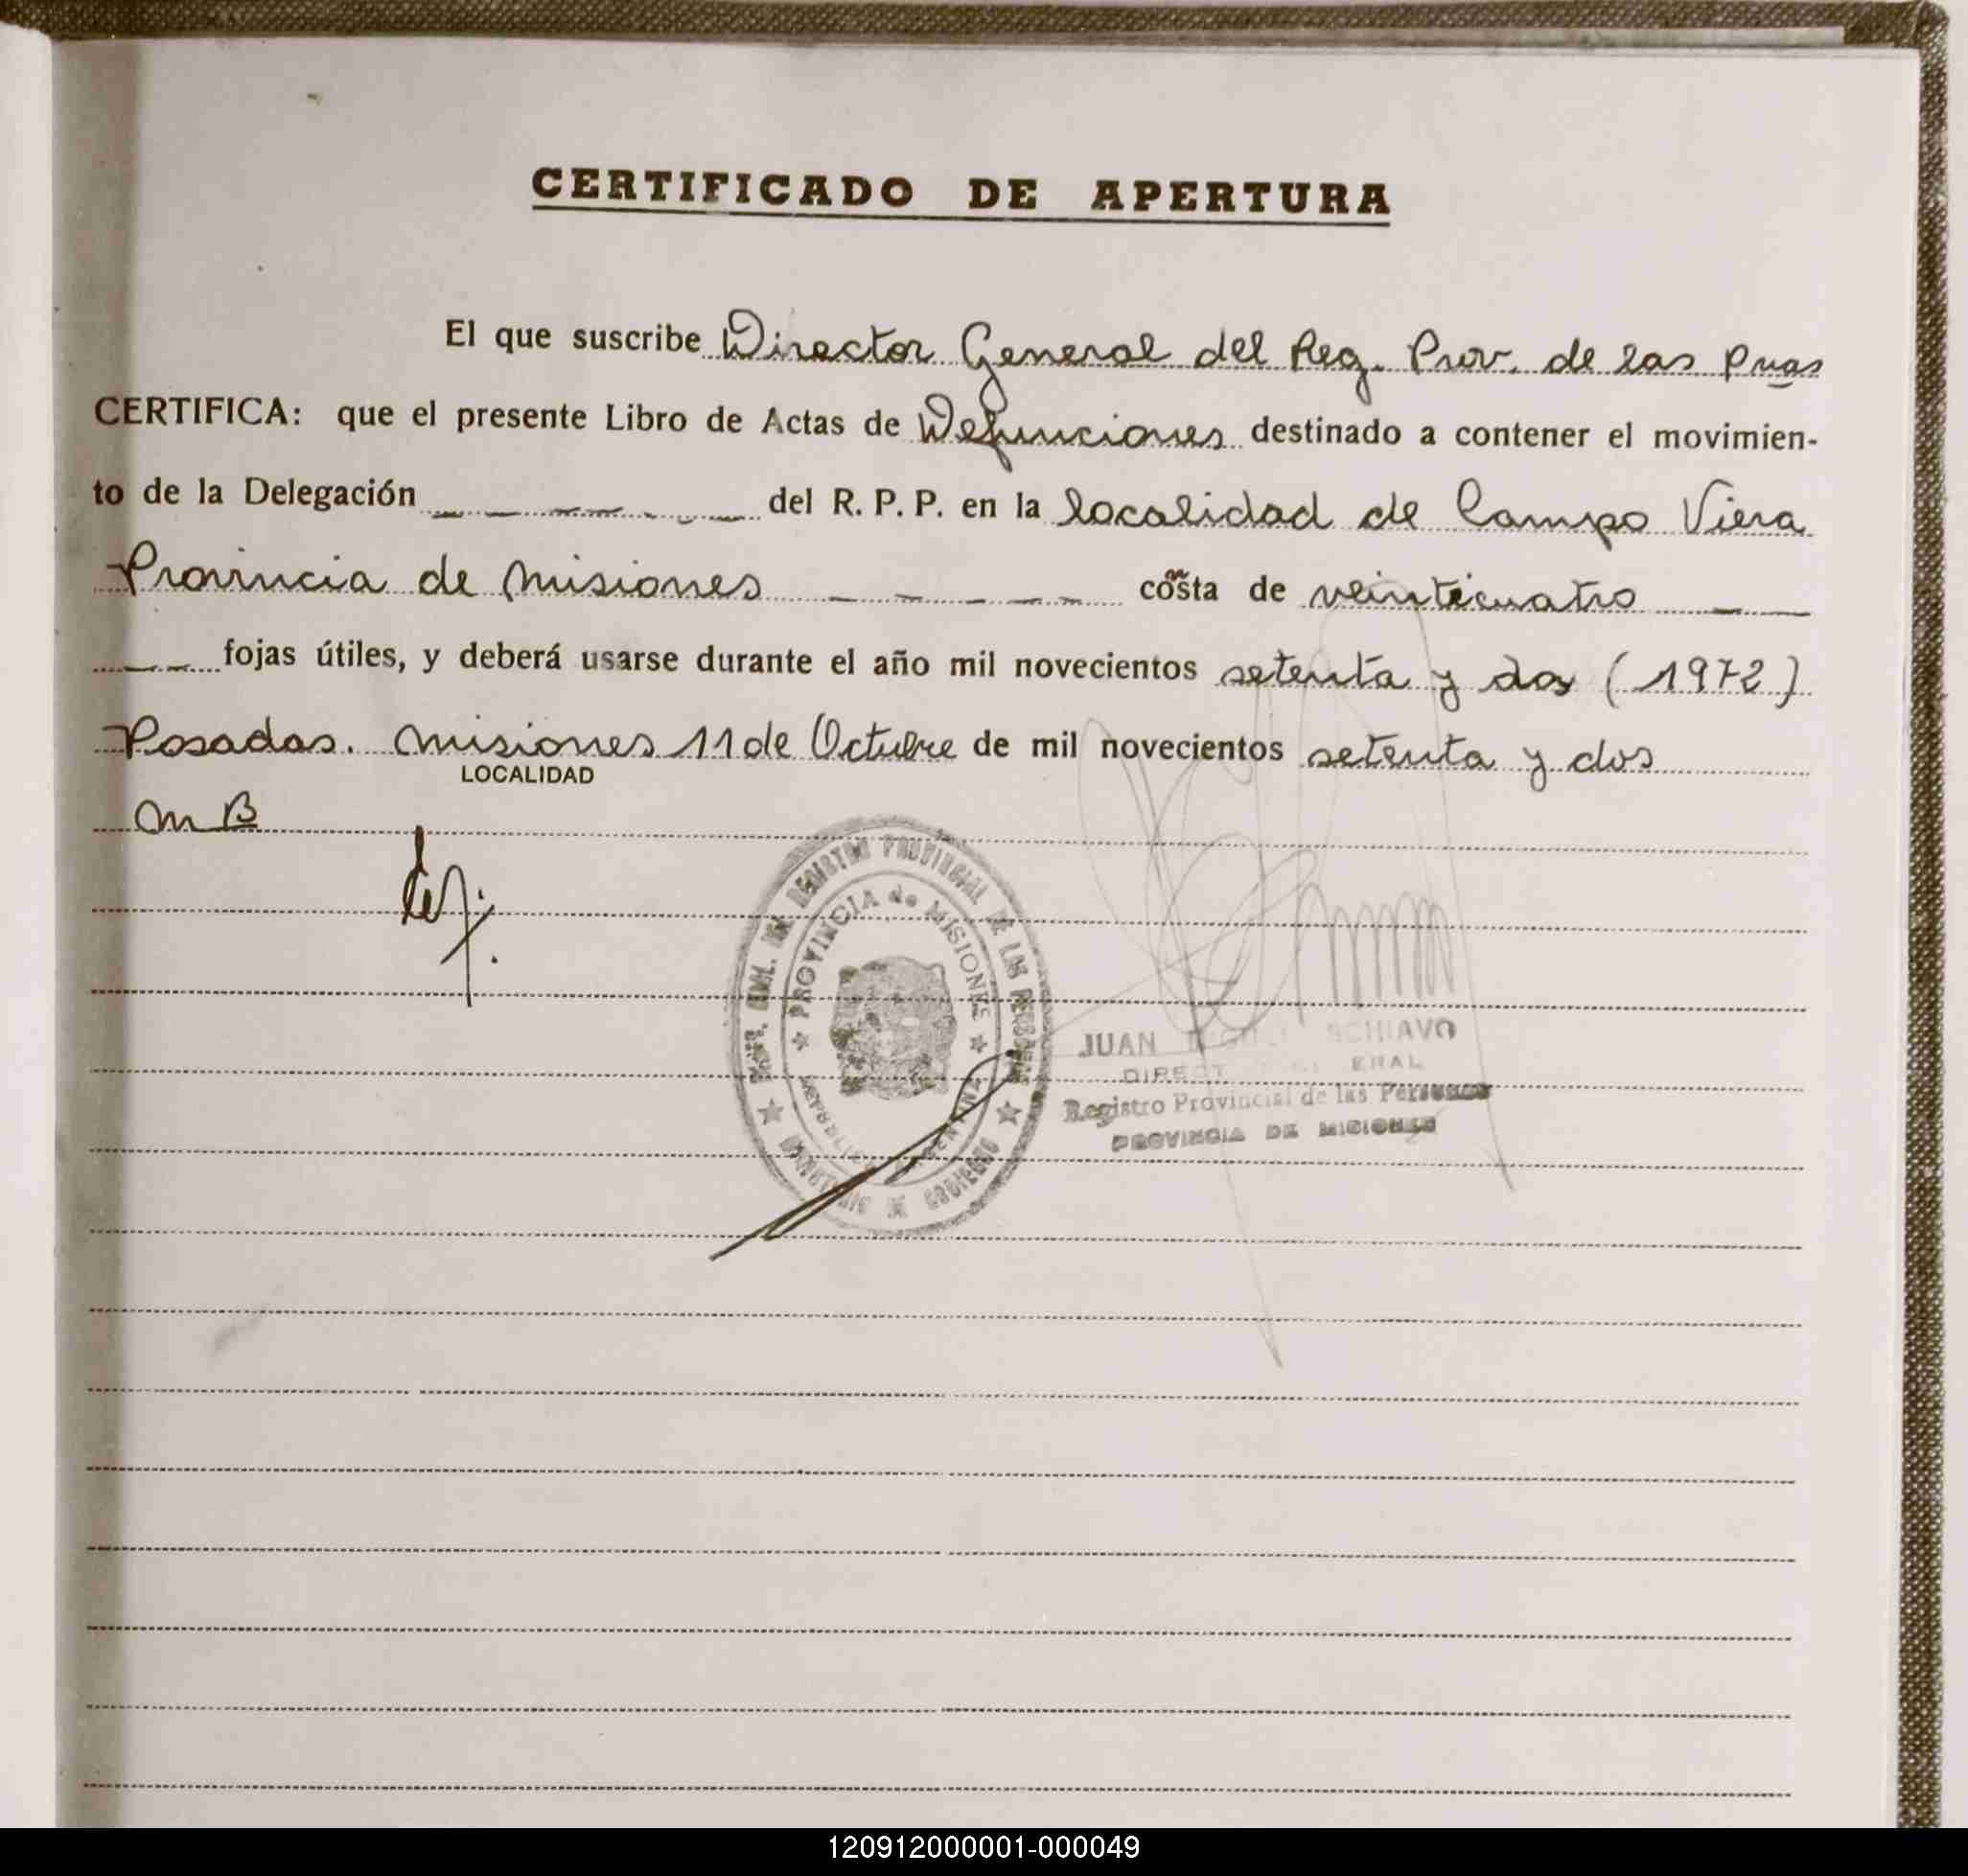 CERTIFICADO DE APERTURA
El que suscribe Director General del Reg. Prov. de las Pnas
CERTIFICA: que el presente Libro de Actas de Defunciones destinado a contener el movimien-
to de la Delegación _ _ _ _ _ del R. P. P. en la localidad de Campo Viera
Provincia de Misiones _ _ _ _ _ costa de veinticuatro _ _
_ _ fojas útiles, y deberá usarse durante el año mil novecientos setenta y dos (1972)
Posadas. Misiones 11 de Octubre de mil novecientos setenta y dos
LOCALIDAD
MB
GRAL. DEL REGISTRO PROVINCIAL DE LAS PERSONAS
PROVINCIA de MISIONES
MINISTERIO DE GOBIERNO
JUAN SCHIAVO
Registro Provincial de las Personas
PROVINCIA DE MISIONES
120912000001-000049